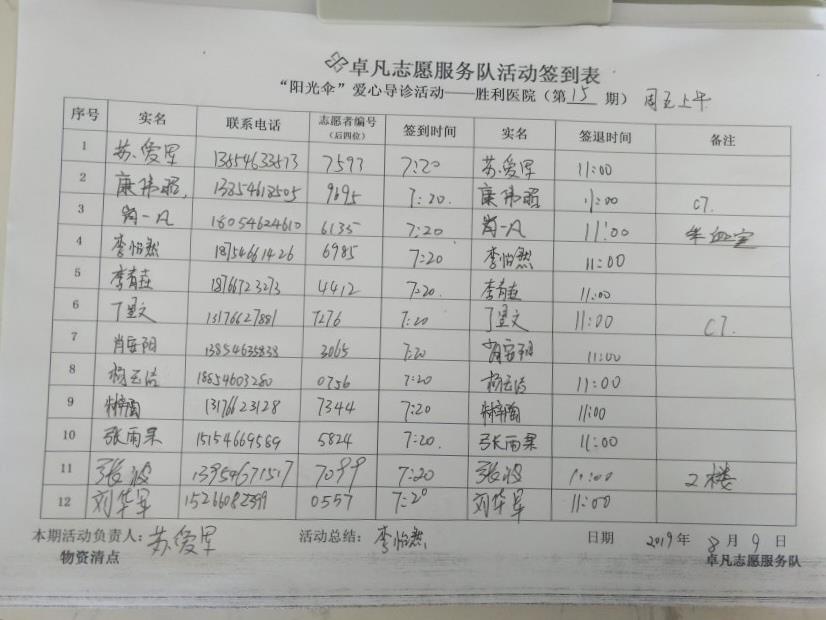 卓凡志愿服务队活动签到表
“阳光伞”爱心导诊活动——胜利医院（第15期）周五上午
序号 实名 联系电话 志愿者编号（后四位） 签到时间 实名 签退时间 备注
1 苏爱军 13854633573 7593 7:20 苏爱军 11:00
2 康伟昭 13854618505 9695 7:20. 康伟昭 11:00 CT.
3 一凡 18054624610 6135 7:20 一凡 11:00 采血室
4 李怡然 18754661426 6985 7:20 李怡然 11:00
5 李青 18766723273 4412 7:20. 李青 11:00
6 丁昱文 13176627881 7276 7:20 丁昱文 11:00 CT.
7 肖安阳 13854635833 3065 7:20 肖安阳 11:00
8 杨 洁 18854603280 0756 7:20 杨 洁 11:00
9 13176623128 7344 7:20 11:00
10 张雨果 15154669589 5824 7:20. 张雨果 11:00
11 张波 13954671517 7099 7:20 张波 11:00 2楼
12 刘华军 15266082399 0557 7:20 刘华军 11:00
本期活动负责人：苏爱军 活动总结：李怡然 日期 2019年8月9日
物资清点 卓凡志愿服务队